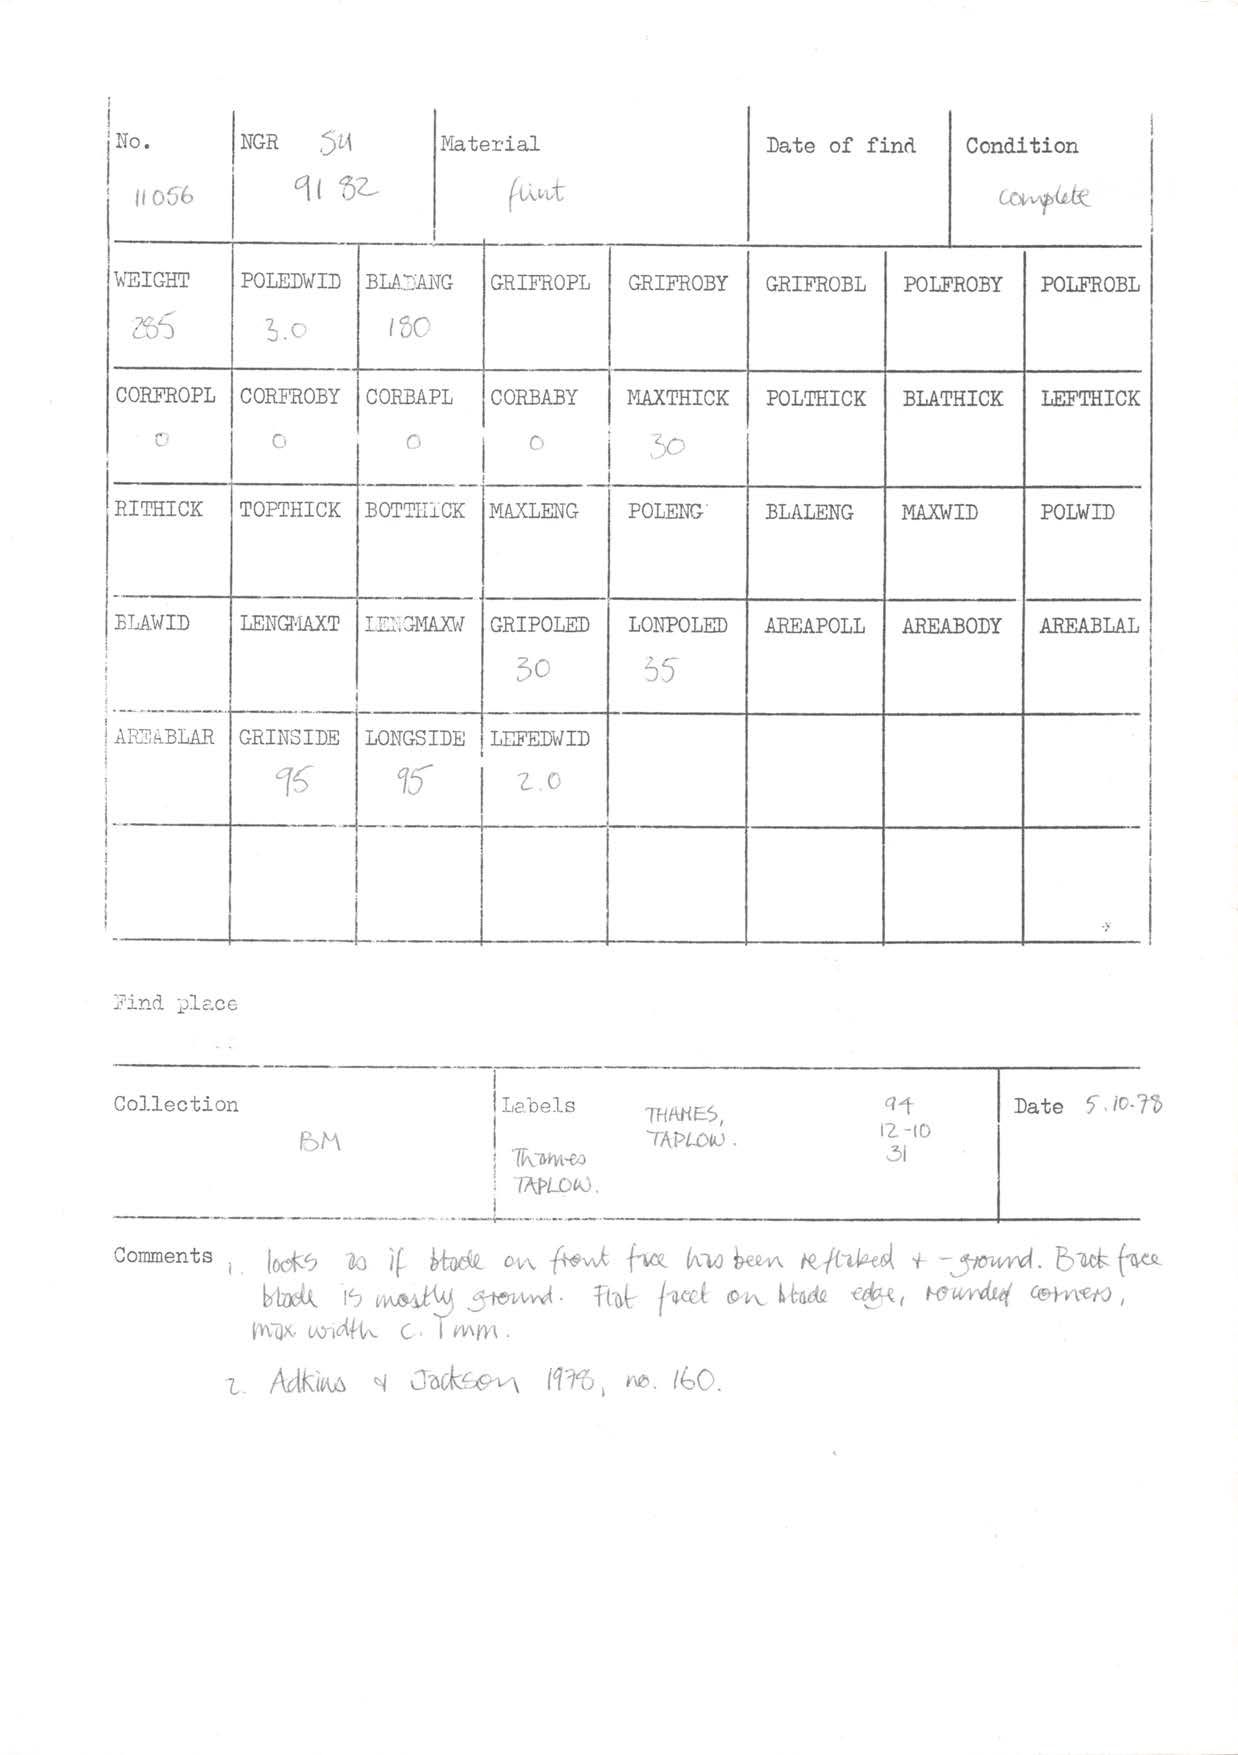 No. NGR SU Material Date of find Condition
11056 91 82 flint complete
WEIGHT POLEDWID BLADANG GRIFROPL GRIFROBY GRIFROBL POLFROBY POLFROBL
285 3.0 180
CORFROPL CORFROBY CORBAPL CORBABY MAXTHICK POLTHICK BLATHICK LEFTHICK
0 0 0 0 30
RITHICK TOPTHICK BOTTHICK MAXLENG POLENG BLALENG MAXWID POLWID
BLAWID LENGMAXT LENGMAXW GRIPOLED LONPOLED AREAPOLL AREABODY AREABLAL
30 35
AREABLAR GRINSIDE LONGSIDE LEFEDWID
95 95 2.0
Find place
Collection
BM
Labels
Thames
TAPLOW.
THAMES,
TAPLOW.
94
12-10
31
Date 5.10.78
Comments 1. looks as if blade on front face has been reflaked + -ground. Back face
blade is mostly ground. Flat facet on blade edge, rounded corners,
max width c. 1mm.
2. Adkins & Jackson 1978, no. 160.